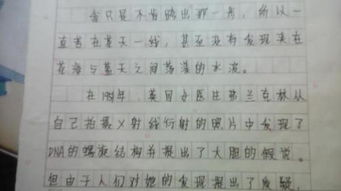 会只是不肯踏出那一舟，所以一
直留在蓝天一线，甚至没有发现夹在
花海与蓝天之间荡漾的水波。
在1951年，英国女医生弗兰克林从
自己拍摄X射线衍射的照片中发现了
DNA的螺旋结构并提出了大胆的假说
但由于人们对她的发现提出了质疑，